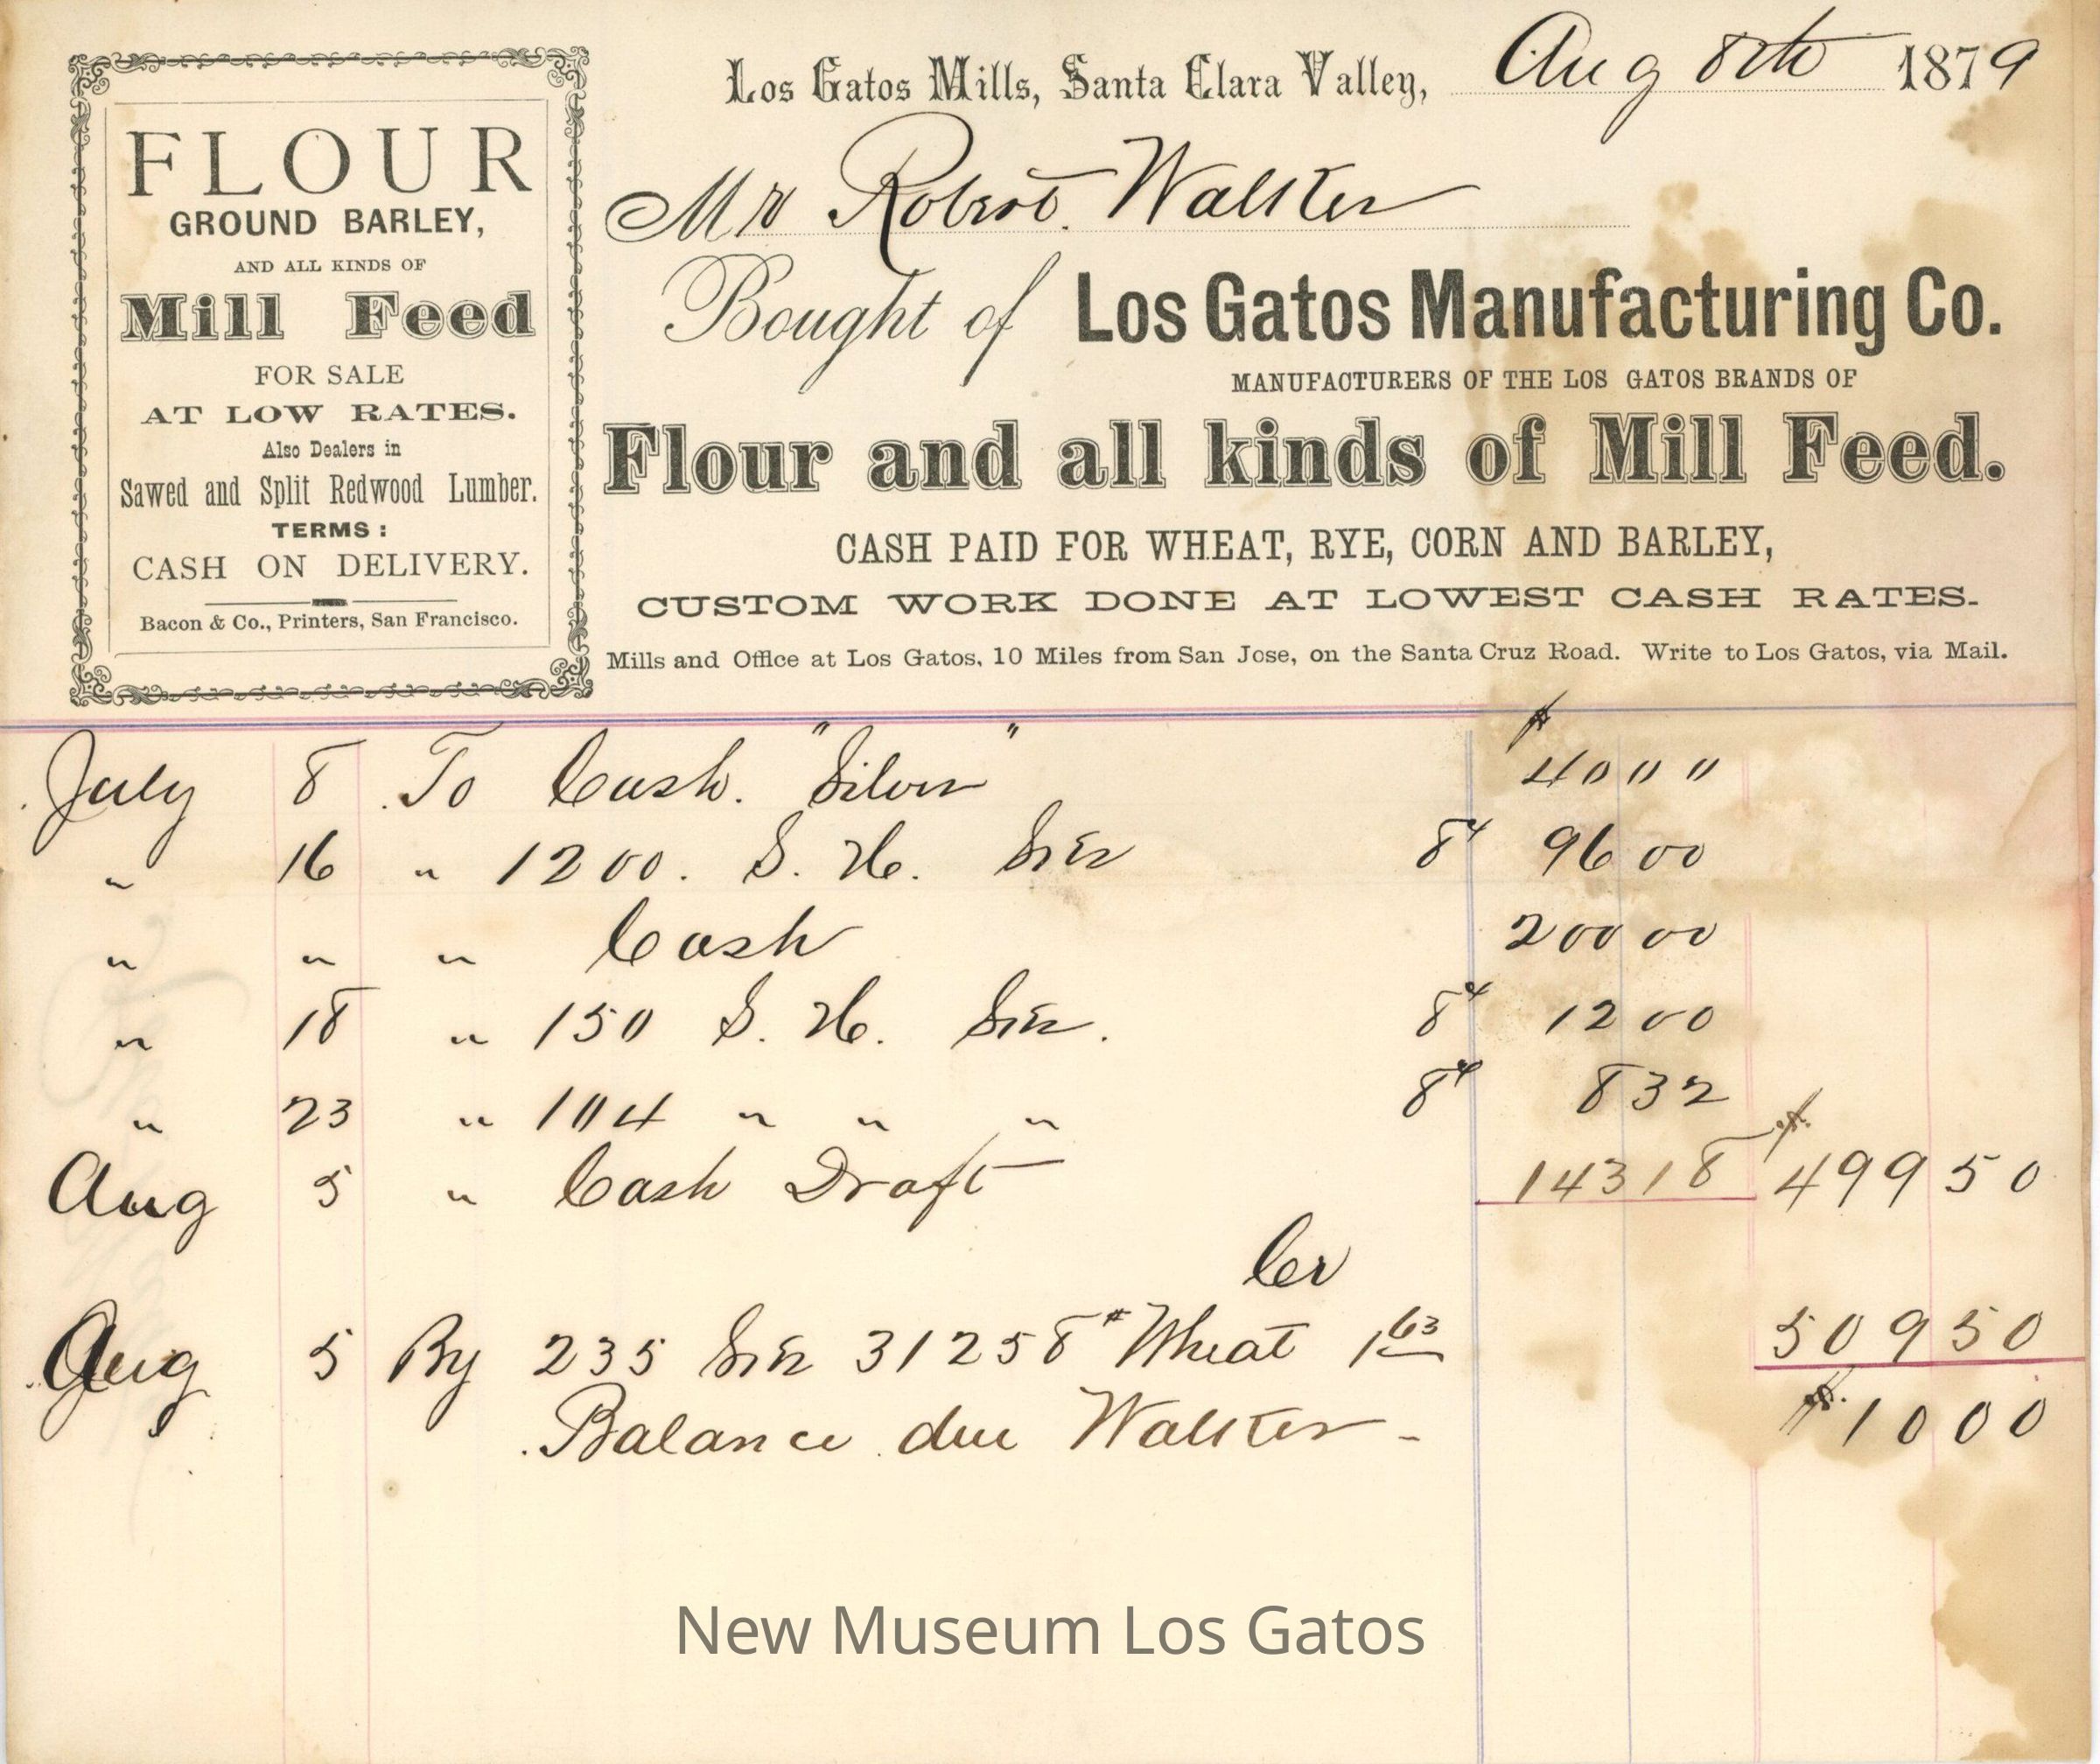 FLOUR
GROUND BARLEY,
AND ALL KINDS OF
Mill Feed
FOR SALE
AT LOW RATES.
Also Dealers in
Sawed and Split Redwood Lumber.
TERMS:
CASH ON DELIVERY.
Bacon & Co., Printers, San Francisco.
Los Gatos Mills, Santa Clara Valley, Aug 8th 1879
Mr Robert Walker
Bought of Los Gatos Manufacturing Co.
MANUFACTURERS OF THE LOS GATOS BRANDS OF
Flour and all kinds of Mill Feed.
CASH PAID FOR WHEAT, RYE, CORN AND BARLEY,
CUSTOM WORK DONE AT LOWEST CASH RATES.
Mills and Office at Los Gatos, 10 Miles from San Jose, on the Santa Cruz Road. Write to Los Gatos, via Mail.
July 8 To Cash. "Silver" $ 40 00
" 16 " 1200. S. H. 8 96 00
" " " Cash 200 00
" 18 " 150 S. H. 8 12 00
" 23 " 104 " " " 8 8 32
Aug 5 " Cash Draft 143 18 $ 499 50
Cr
Aug 5 By 235 31258 # Wheat 1 63 509 50
Balance due Walker - $ 10 00
New Museum Los Gatos